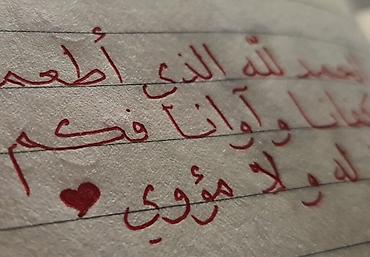 الحمد لله الذي أطعم
كفانا و آوانا فكم
له و لا مؤوي